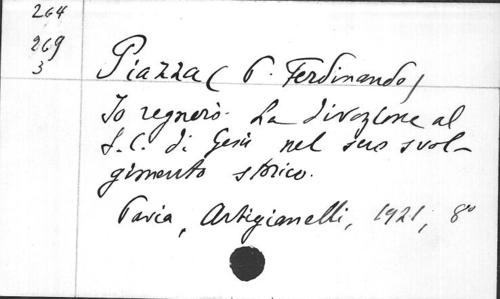 264
269
3
Piazza (P. Ferdinando)
Io regnerò. La divozione al
S. C. di Gesù nel suo svol-
gimento storico.
Pavia, Artigianelli, 1921, 8º